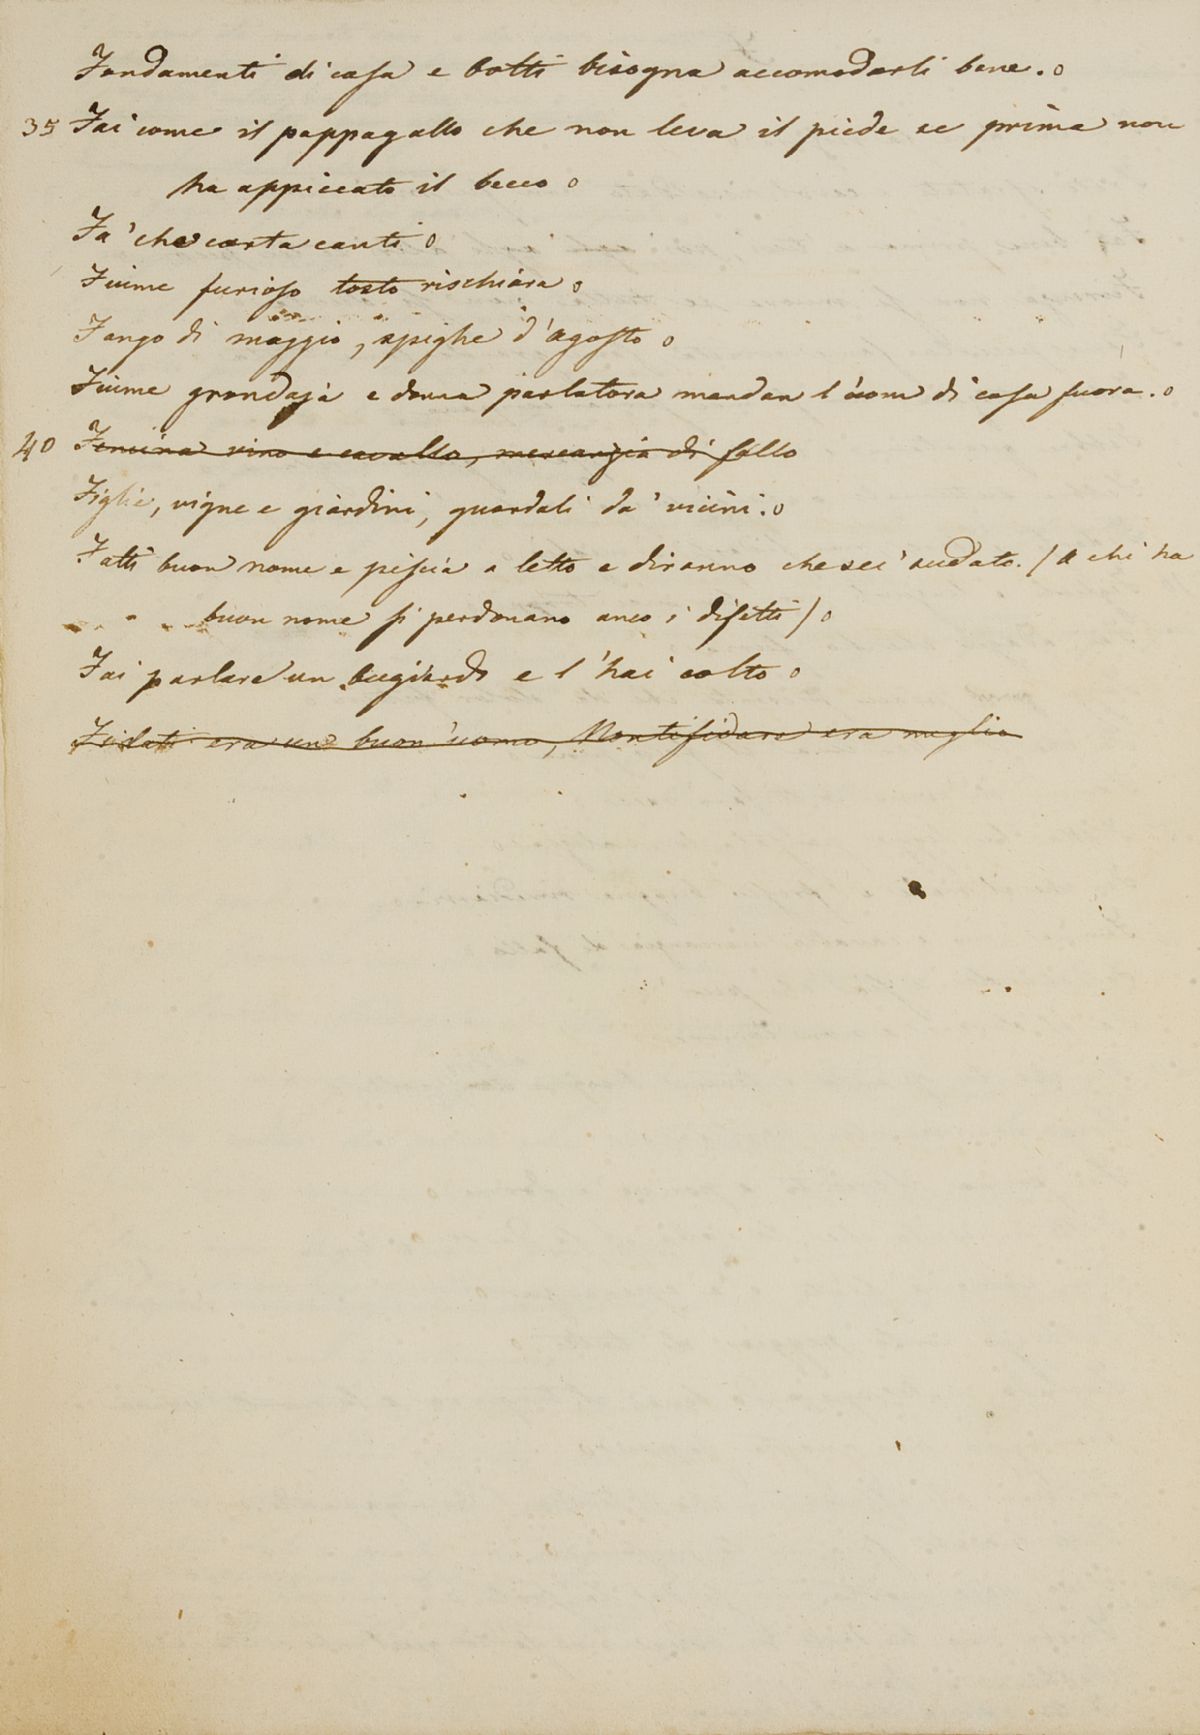 Fondamenti di casa e botti bisogna accomodarli bene. o
35 Fai come il pappagallo che non leva il piede se prima non
ha appiccato il becco o
Fa' che carta canti o
Fiume furioso tosto rischiara o
Fango di maggio, spighe d'agosto o
Fiume grondaja e donna parlatora mandan l'uom di casa fuora. o
40 Femina vino e cavallo, mercanzia di fallo
Figlie, vigne e giardini, guardali da' vicini. o
Fatti buon nome e piscia a letto e diranno che sei sudato. / A chi ha
buon nome si perdonano anco i difetti / o
Fai parlare un bugiardo e l'hai colto o
Fidati era un buon uomo, Nontifidare era meglio